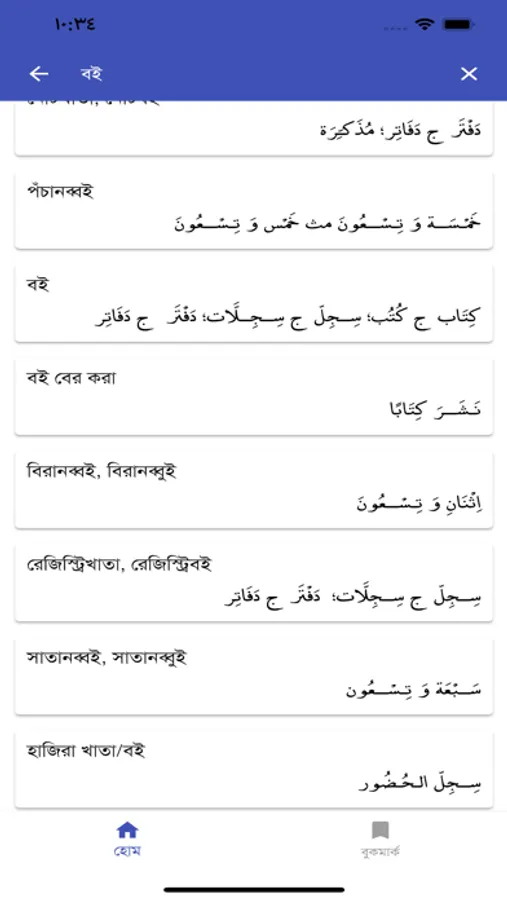 ١٠:٣٤
বই
নোটখাতা, নোটবই
دَفْتَر ج دَفَاتِر؛ مُذَكِّرَة
পঁচানব্বই
خَمْسَــة وَ تِـسْــعُونَ مث خَمْس وَ تِـسْــعُونَ
বই
كِتَاب ج كُتُب؛ سِــجِلّ ج سِــجِــلَّات؛ دَفْتَر ج دَفَاتِر
বই বের করা
نَـشَــرَ كِتَابًا
বিরানব্বই, বিরানব্বুই
اِثْنَانِ وَ تِـسْــعُونَ
রেজিস্ট্রিখাতা, রেজিস্ট্রিবই
سِــجِلّ ج سِــجِلَّات؛ دَفْتَر ج دَفَاتِر
সাতানব্বই, সাতানব্বুই
سَــبْعَة وَ تِـسْــعُون
হাজিরা খাতা/বই
سِــجِلّ الـحُـضُور
হোম
বুকমার্ক